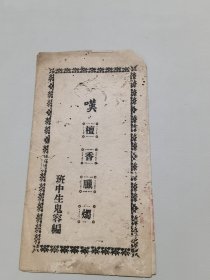 嘆
檀香臘燭
班中生鬼容編